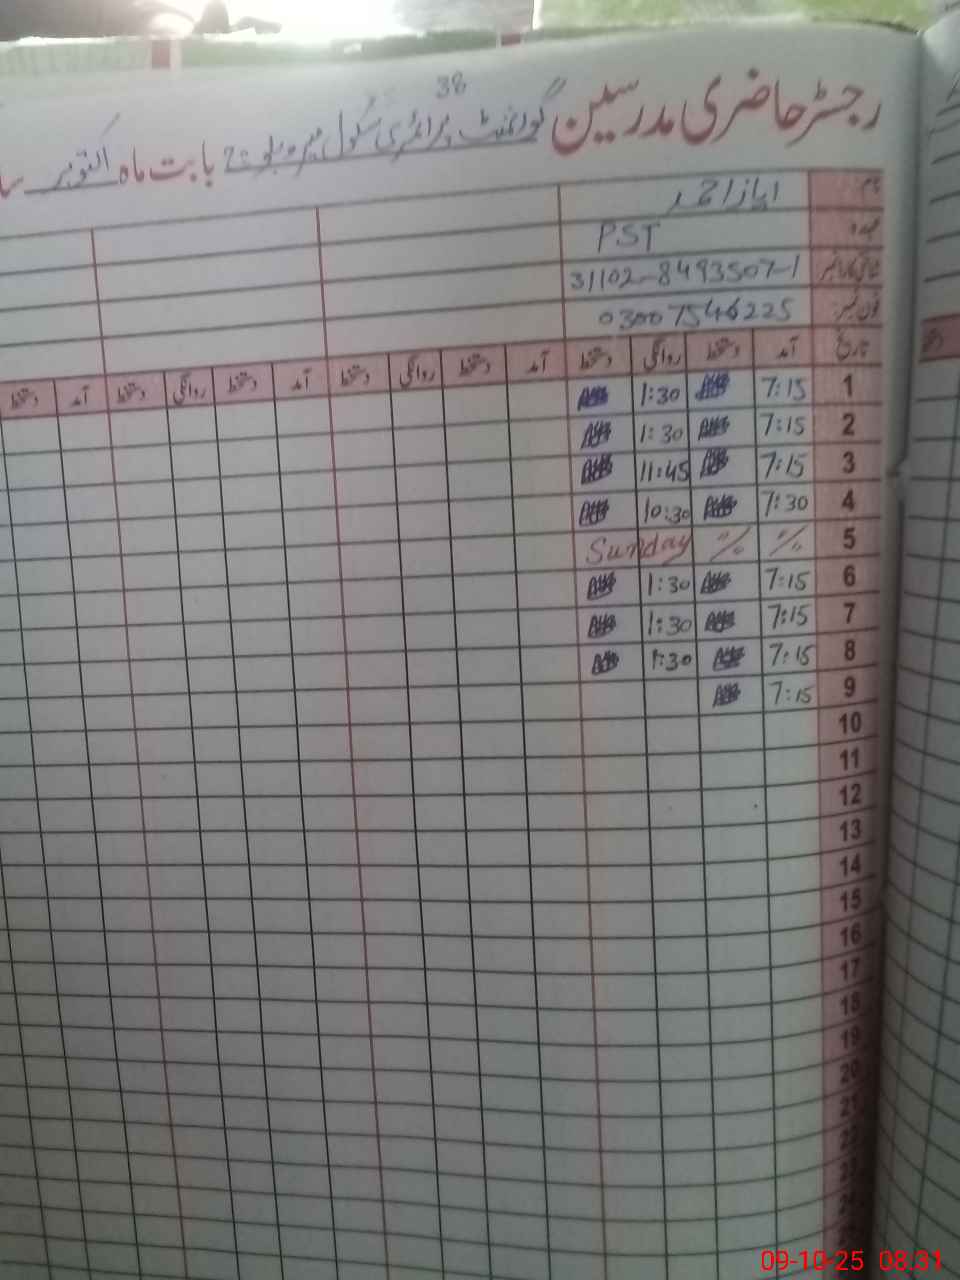 38
رجسٹر حاضری مدرسین گورنمنٹ پرائمری سکول بابت ماہ اکتوبر
نام ایاز احمد
عہدہ PST
شناختی کارڈ نمبر 31102-8493507-1
فون نمبر 03007546225
تاریخ آمد دستخط روانگی دستخط آمد دستخط روانگی دستخط آمد دستخط روانگی دستخط آمد دستخط
1 7:15 1:30
2 7:15 1:30
3 7:15 11:45
4 7:30 10:30
5 〃 〃 Sunday
6 7:15 1:30
7 7:15 1:30
8 7:15 1:30
9 7:15
10
11
12
13
14
15
16
17
18
19
20
21
22
23
24
09-10-25 08:31